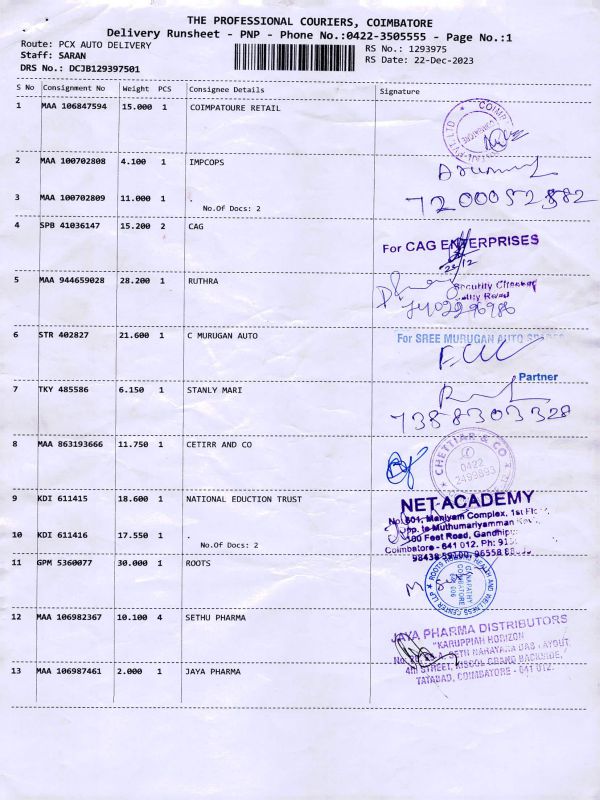 THE PROFESSIONAL COURIERS, COIMBATORE
Delivery Runsheet - PNP - Phone No.:0422-3505555 - Page No.:1
Route: PCX AUTO DELIVERY
RS No.: 1293975
Staff: SARAN
RS Date: 22-Dec-2023
DRS No.: DCJB129397501
S No Consignment No Weight PCS Consignee Details Signature
1 MAA 106847594 15.000 1 COIMPATOURE RETAIL
2 MAA 100702808 4.100 1 IMPCOPS
3 MAA 100702809 11.000 1
No.Of Docs: 2
7200052882
4 SPB 41036147 15.200 2 CAG
For CAG ENTERPRISES
22/12
5 MAA 944659028 28.200 1 RUTHRA
Security Checked
7402296986
6 STR 402827 21.600 1 C MURUGAN AUTO
For SREE MURUGAN AUTO SPARES
Partner
7 TKY 485586 6.150 1 STANLY MARI
7388303328
8 MAA 863193666 11.750 1 CETIRR AND CO
CHETTIAR & CO
0422
2493893
9 KDI 611415 18.600 1 NATIONAL EDUCTION TRUST
NET ACADEMY
No. 601, Maniyam Complex, 1st Floor,
Opp. to Muthumariyamman
100 Feet Road, Gandhipu
Coimbatore - 641 012. Ph:
10 KDI 611416 17.550 1
No.Of Docs: 2
11 GPM 5360077 30.000 1 ROOTS
HEALTH AND WELLNESS CENTER LLP
GANAPATHY
COIMBATORE
12 MAA 106982367 10.100 4 SETHU PHARMA
JAYA PHARMA DISTRIBUTORS
"KARUPPIAH HORIZON
LAYOUT,
4th STREET,
TATABAD, COIMBATORE - 641 012.
13 MAA 106987461 2.000 1 JAYA PHARMA